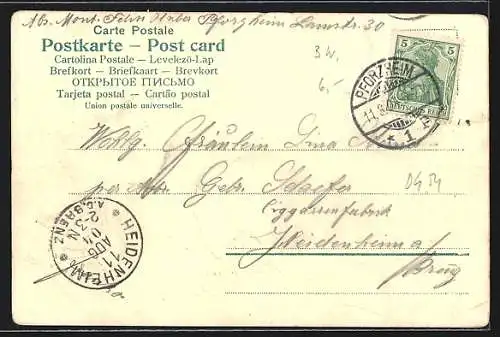 Abs. Mont. Felix Huber Pforzheim Lamstr. 30
Carte Postale
Postkarte – Post card
Cartolina Postale – Levelező-Lap
Brefkort – Briefkaart – Brevkort
ОТКРЫТОЕ ПИСЬМО
Tarjeta postal – Cartão postal
Union postale universelle.
3 W.
6.-
5 5
DEUTSCHES REICH
PFORZHEIM
11.8.
1
Wohlg. Fräulein Lina
per Adr. Gebr. Schaefer
0454
Ciggarrenfabrik
Heidenheim a/
Brenz
HEIDENHEIM
A.D. BRENZ
11
AUG
04
2-3 N